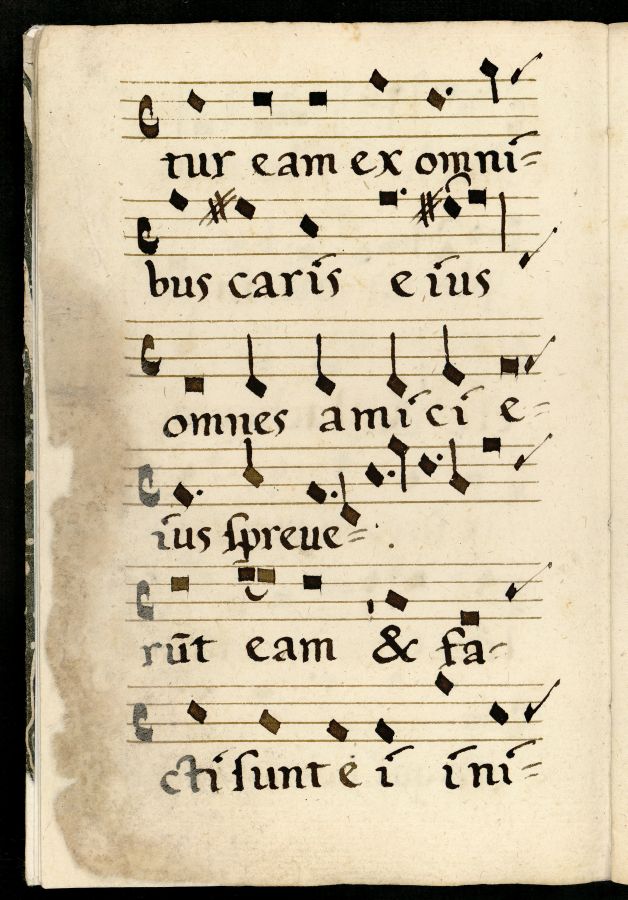 tur eam ex omni=
bus caris eius
omnes amici e=
ius ſpreue=
rūt eam & fa=
cti ſunt ei ini=